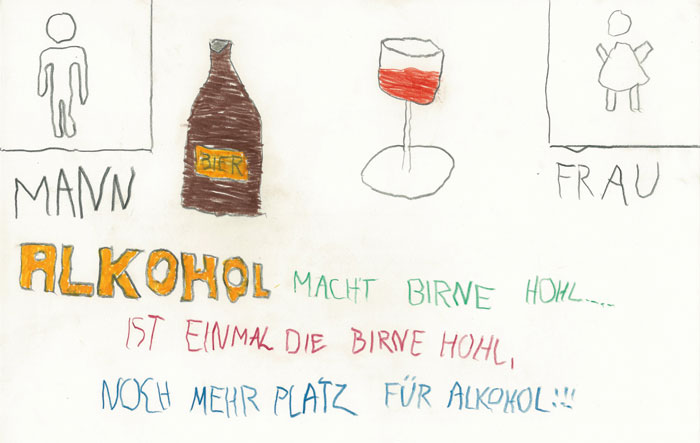 BIER
MANN
FRAU
ALKOHOL MACHT BIRNE HOHL....
IST EINMAL DIE BIRNE HOHL,
NOCH MEHR PLATZ FÜR ALKOHOL!!!